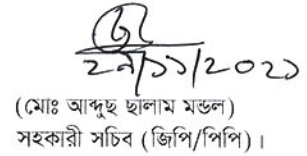 ২৯/১১/২০২১
(মোঃ আব্দুছ ছালাম মন্ডল)
সহকারী সচিব (জিপি/পিপি)।